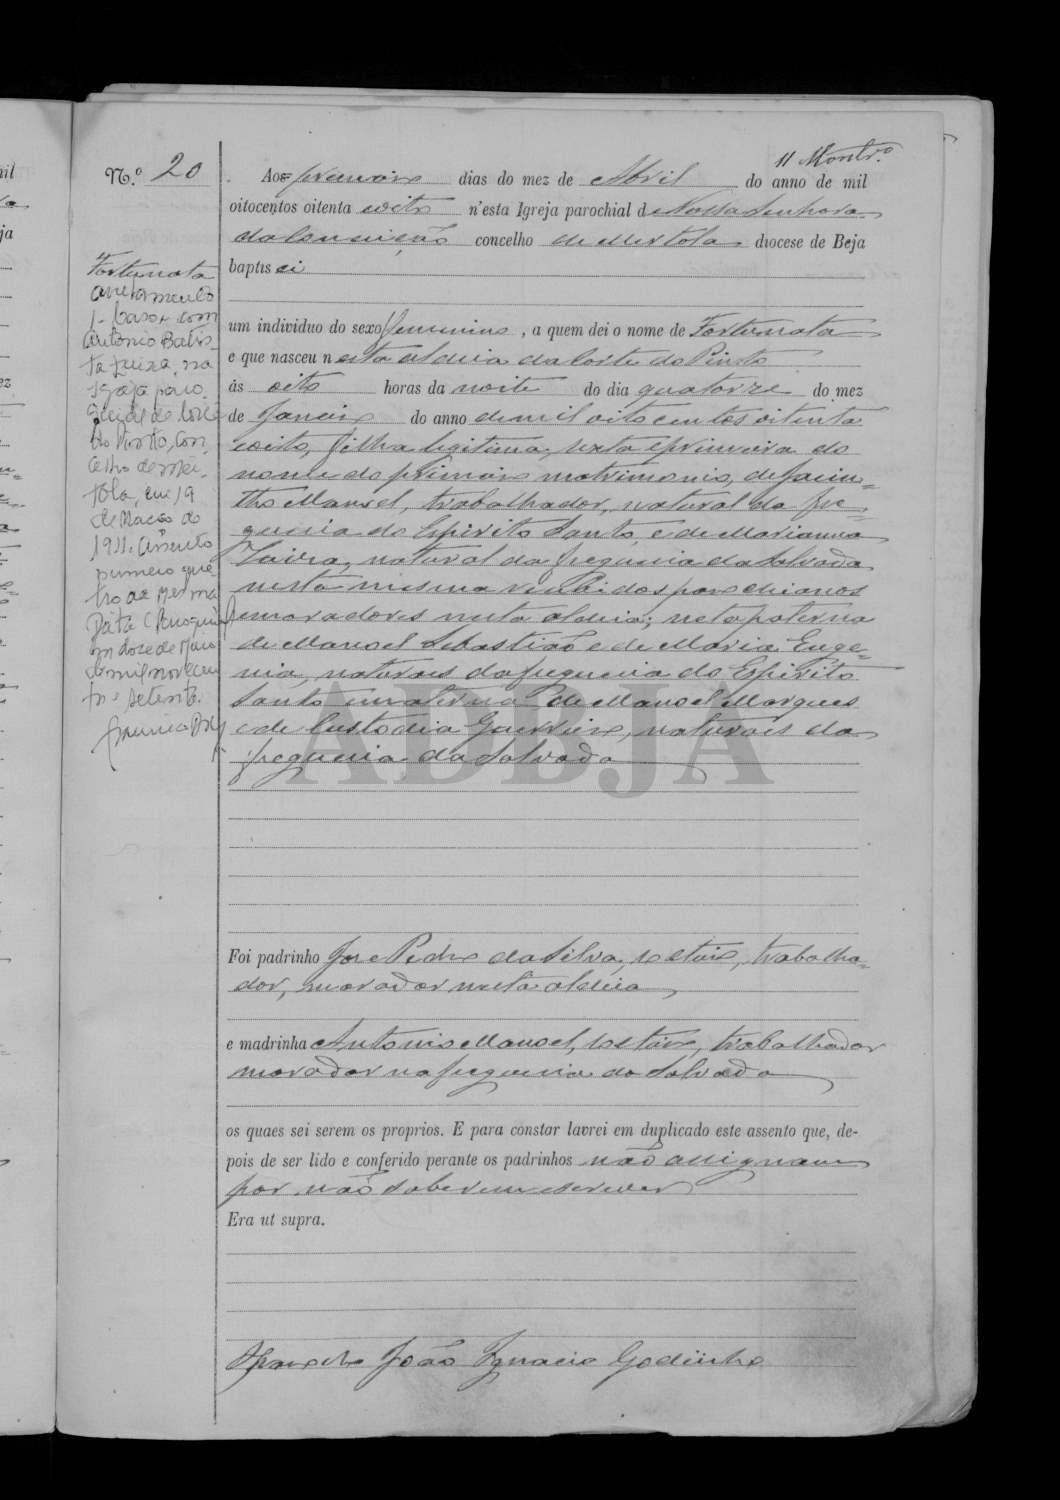 11 Montr.º
N.º 20
Fortunata
Averbamento
1- Casou com
Antonio Batis-
ta na
Igreja paro
do Pinto, con
celho de Mér
tola, em 19
de Março de
1911. Assento
primeiro
da mesma
Data
em doze de Maio
de mil novecen
tos setenta.
Aos primeiro dias do mez de Abril do anno de mil
oitocentos oitenta e oito n'esta Igreja parochial de Nossa Senhora
da Conceição concelho de Mertola diocese de Beja
baptisei
um individuo do sexo feminino, a quem dei o nome de Fortunata
e que nasceu nesta aldeia da Corte do Pinto
ás oito horas da noite do dia quatorze do mez
de Janeiro do anno de mil oitocentos oitenta
e oito, filha legitima, sexta e primeira do
nome do primeiro matrimonio, de Jacin=
tho Manoel, trabalhador, natural da fre=
guezia do Espirito Santo, e de Marianna
natural da freguezia da Salvada
nesta mesma recebidos parochianos
e moradores nesta aldeia; neta paterna
de Manoel Sebastião e de Maria Euge=
nia, naturaes da freguezia do Espirito
Santo e materna de Manoel Marques
e de Custodia Guerreiro, naturaes da
freguezia da Salvada
Foi padrinho José Pedro da Silva, solteiro, trabalha=
dor, morador nesta aldeia
e madrinha Antonio Manoel, solteiro, trabalhador
morador na freguezia da Salvada
os quaes sei serem os proprios. E para constar lavrei em duplicado este assento que, de-
pois de ser lido e conferido perante os padrinhos não assignam
por não saberem escrever
Era ut supra.
João Ignacio Godinho
ADBJA